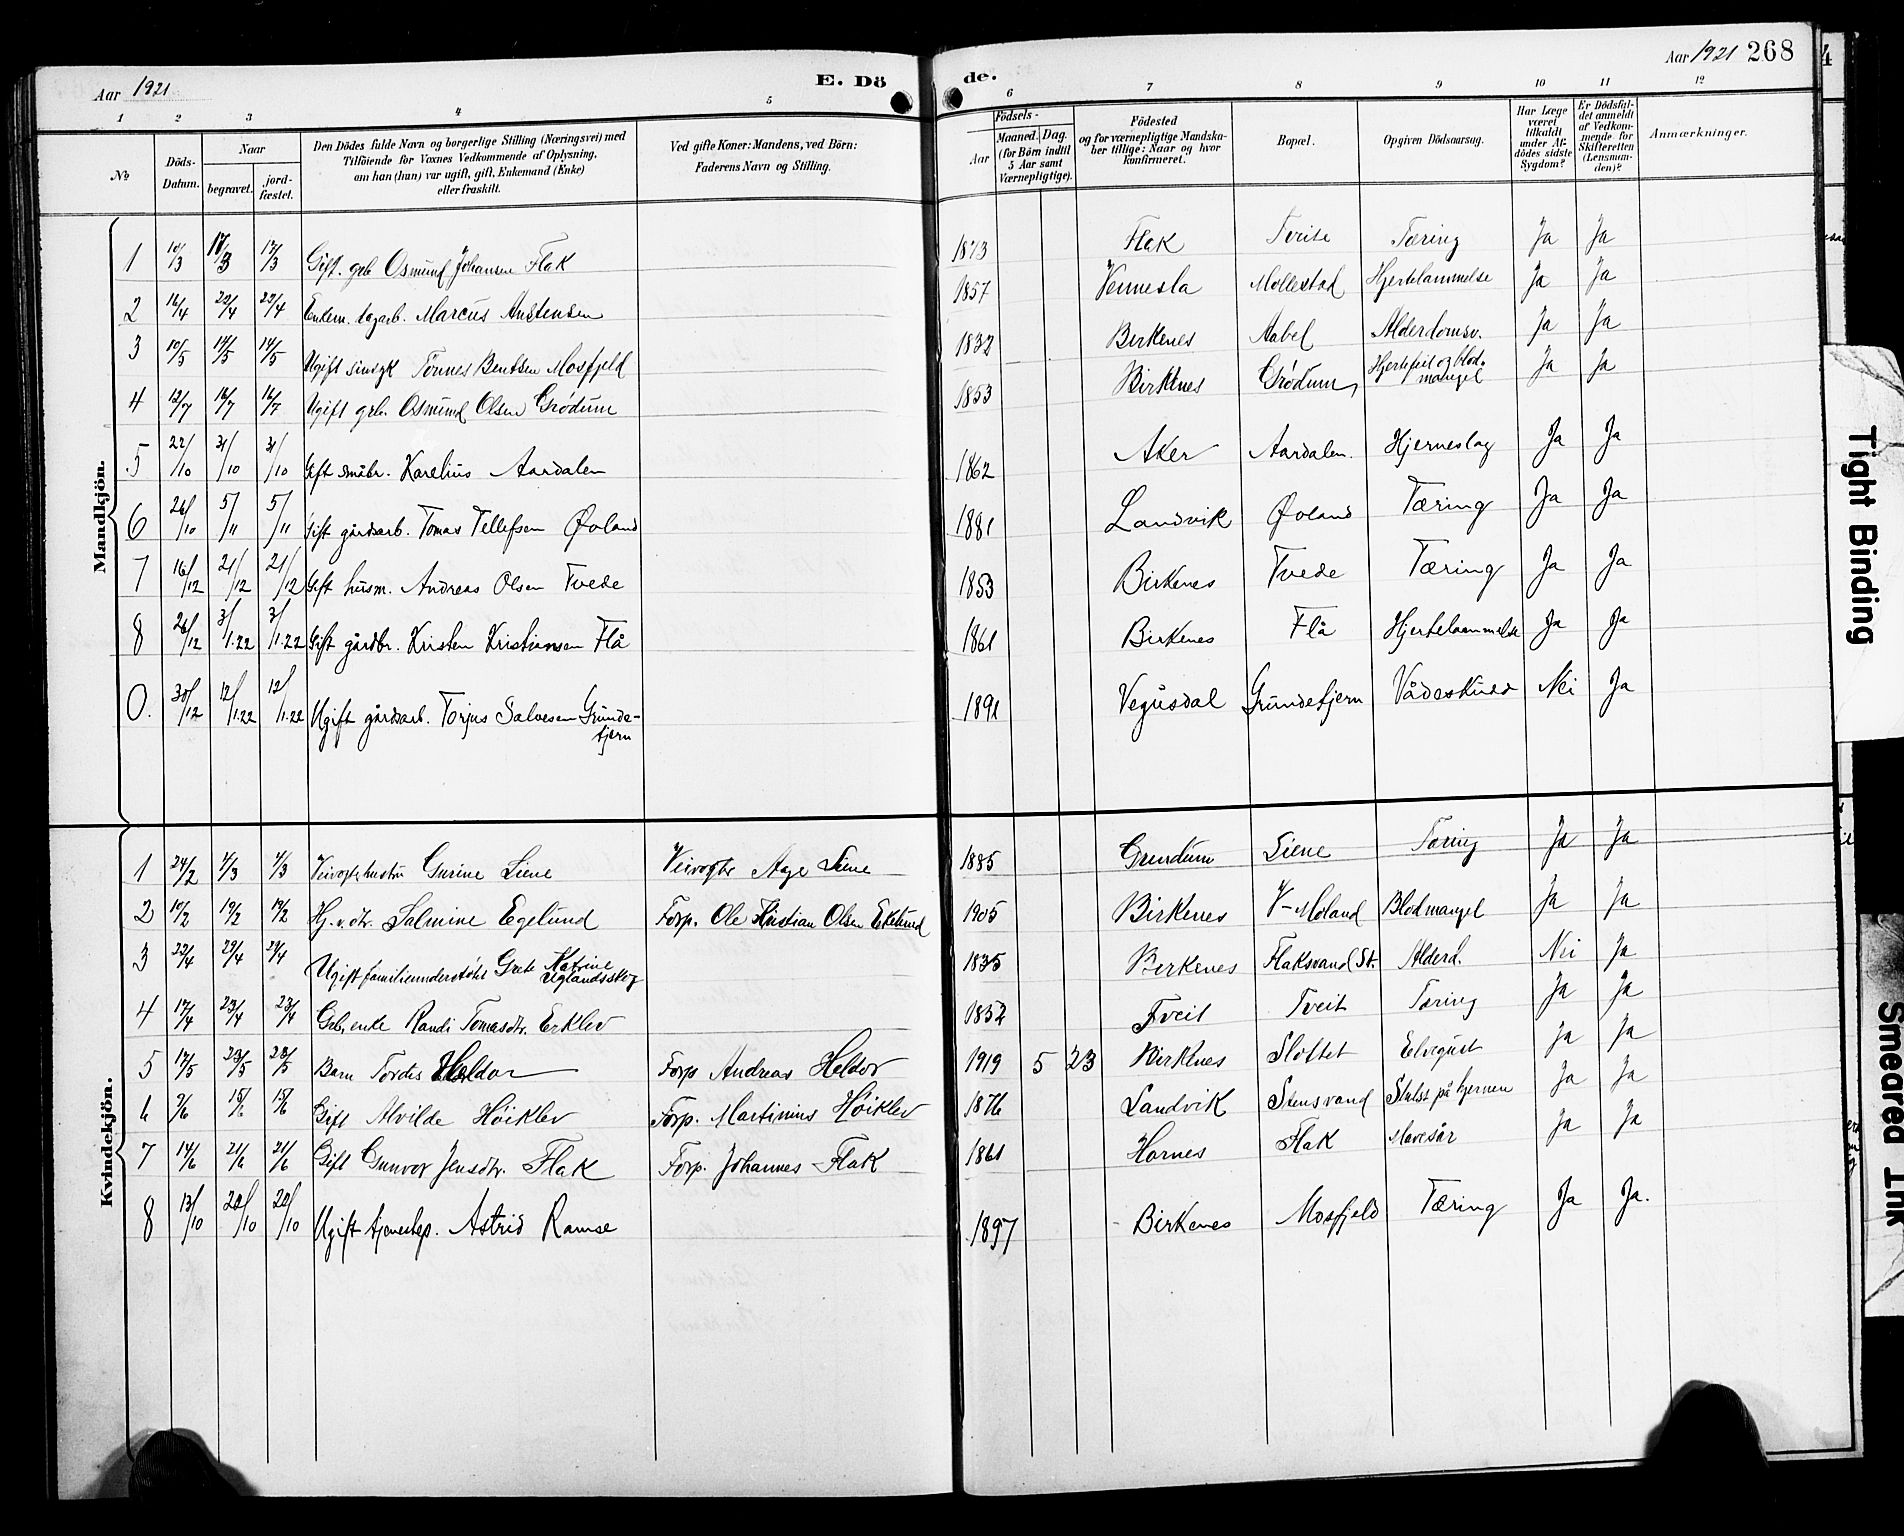 Aar 1921 E. Dö de. Aar 1921 268
1 2 3 4 5 6 7 8 9 10 11 12
No
Döds-Datum.
Naar
begravet.
jord-fæstet.
Den Dödes fulde Navn og borgerlige Stilling (Næringsvei) med
Tilföiende for Voxnes Vedkommende af Oplysning,
om han (hun) var ugift, gift, Enkemand (Enke)
eller fraskilt.
Ved gifte Koner: Mandens, ved Börn:
Faderens Navn og Stilling.
Födsels-
Aar
Maaned. Dag.
(for Börn indtil
5 Aar samt
Værnepligtige).
Födested
og for værnepligtige Mandska-
ber tillige: Naar og hvor
konfirmeret.
Bopæl.
Opgiven Dödsaarsag.
Har Læge
været
tilkaldt
under Af-
dödes sidste
Sygdom?
Er Dödsfal-
det anmeldt
af Vedkom-
mende for
Skifteretten
(Lensman-
den)?
Anmærkninger.
Mandkjön.
1 10/3 17/3 17/3 Gift. grb Osmund Johansen Flak 1873 Flak Tveite Tæring Ja Ja
2 16/4 29/4 29/4 Enkem. dagarb. Marcus Anstensen 1857 Vennesla Mollestad Hjertelammelse Ja Ja
3 10/5 14/5 14/5 Ugift sinsyk Tönnes Bentsen Mosfjeld 1832 Birkenes Aabel Alderdomsv. Ja Ja
4 12/7 16/7 16/7 Ugift grb. Osmund Olsen Grødum 1853 Birkenes Grødum Hjertefeil og blod-
mangel Ja Ja
5 22/10 31/10 31/10 Gift småbr. Karelius Aardalen 1862 Aker Aardalen. Hjerneslag Ja Ja
6 26/10 5/11 5/11 Gift gårdsarb. Tomas Tellefsen Øvland 1881 Landvik Øvland Tæring Ja Ja
7 16/12 21/12 21/12 Gift husm. Andreas Olsen Tvede 1853 Birkenes Tvede Tæring Ja Ja
8 26/12 3/1.22 3/1.22 Gift gårdbr. Kristen Kristiansen Flå 1861 Birkenes Flå Hjertelammelse Ja Ja
0. 30/12 12/1.22 12/1.22 Ugift gårdsarb. Torjus Salvesen Grunde-
tjern 1891 Vegusdal Grundetjern Vådeskudd Nei Ja
Kvindekjön.
1 24/2 4/3 4/3 Veivogterhustru Gurine Liene Veivogter Aage Liene 1885 Grundum Liene Tæring Ja Ja
2 10/2 19/2 19/2 Hj. v. dtr. Salmine Egelund Forp. Ole Kristian Olsen Ekelund 1905 Birkenes V-Moland Blodmangel Ja Ja
3 22/4 29/4 29/4 Ugift familieunderstöt Grete Katrine
Uglandsskog 1835 Birkenes Flaksvand St. Alderd. Nei Ja
4 17/4 23/4 23/4 Grb. enke Randi Tomasdtr. Erklev 1852 Tveit Tveit Tæring Ja Ja
5 17/5 28/5 28/5 Barn Tordis Heldor Forp Andreas Heldor 1919 5 23 Birkenes Slottet Ja Ja
6 9/6 15/6 15/6 Gift Alvilde Höiklev Forp. Martinius Höiklev 1876 Landvik Stensvand på hjernen Ja Ja
7 14/6 21/6 21/6 Gift Gunvor Jensdtr. Flak Forp. Johannes Flak 1861 Hornes Flak Mavesår Ja Ja
8 13/10 20/10 20/10 Ugift tjenestep. Astrid Ramse 1897 Birkenes Mosfjeld Tæring Ja Ja.
Tight Binding
Smeared Ink